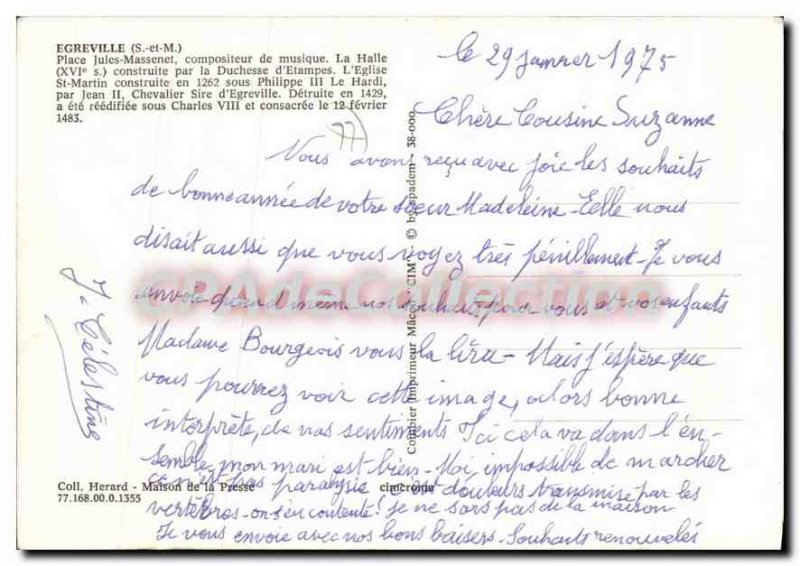 EGREVILLE (S.-et-M.)
Place Jules-Massenet, compositeur de musique. La Halle
(XVIe s.) construite par la Duchesse d'Etampes. L'Eglise
St-Martin construite en 1262 sous Philippe III Le Hardi,
par Jean II, Chevalier Sire d'Egreville. Détruite en 1429,
a été réédifiée sous Charles VIII et consacrée le 12 février
1483.
(77)
le 29 janvier 1975
Chère Cousine Suzanne
Nous avons reçu avec joie les souhaits
de bonne année de votre sœur Madeleine - Elle nous
disait aussi que vous voyez très péniblement - Je vous
envoie quand même nos souhaits pour vous et vos enfants
Madame Bourgeois vous la lira - Mais j'espère que
vous pourrez voir cette image, alors bonne
interprète, de nos sentiments Ici cela va dans l'en-
semble, mon mari est bien - Moi, impossible de marcher
pas paralysie douleurs transmise par les
vertèbres - on s'en contente! je ne sors pas de la maison
Je vous envoie avec nos bons baisers - Souhaits renouvelés
J. Célestine
Combier Imprimeur Mâcon "CIM" - © by spadem - 38-000
CPAdeCollection
Coll. Herard - Maison de la Presse
cimcrome
77.168.00.0.1355